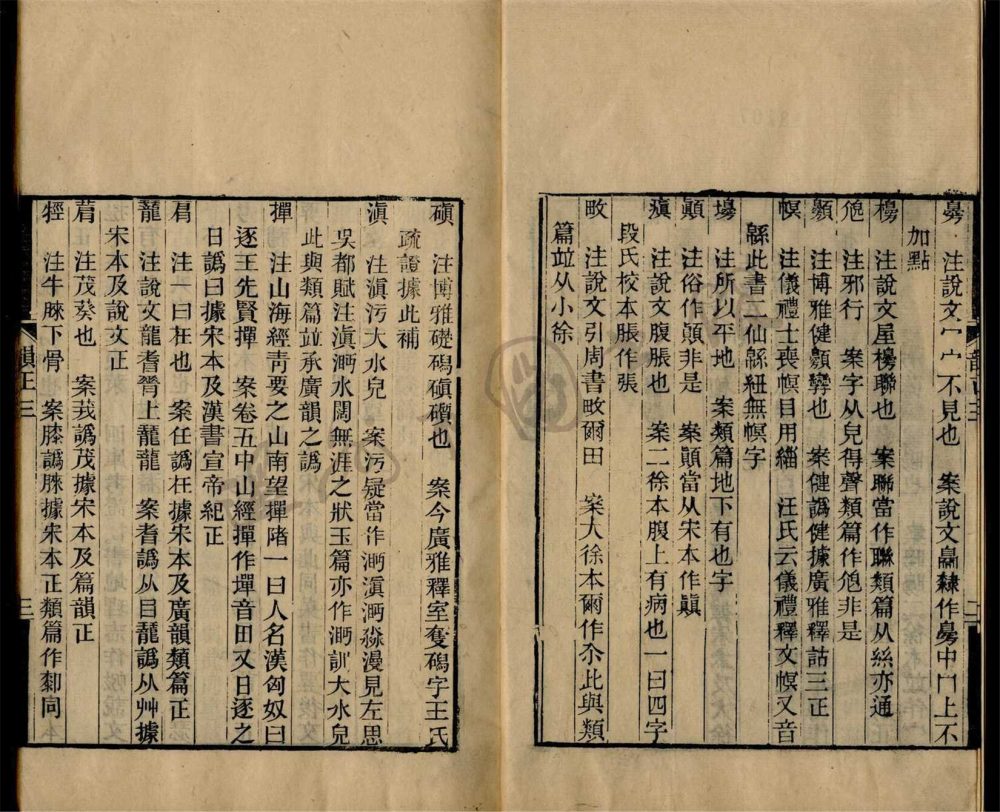 注說文宀宀不見也　案說文𦤝隸作臱中冂上不
加點
櫋　注說文屋櫋聯也　案聯當作聯類篇从絲亦通
注邪行　案字从皃得聲類篇作非是
注博雅健孿也　案健譌健據廣雅釋詁三正
幎　注儀禮士喪幎目用緇　汪氏云儀禮釋文幎又音
緜此書二仙緜紐無幎字
塲　注所以平地　案類篇地下有也字
顚　注俗作顛非是　案顚當从宋本作顚
瘨　注說文腹脹也　案二徐本腹上有病也一曰四字
段氏校本脹作張
畋　注說文引周書畋爾田　案大徐本爾作尒此與類
篇竝从小徐
磌　注博雅礎碣磌礩也　案今廣雅釋室奪碣字王氏
疏證據此補
滇　注滇污大水皃　案污疑當作㴐滇㴐淼漫見左思
吳都賦注滇㴐水闊無涯之狀玉篇亦作㴐訓大水皃
此與類篇竝承廣韻之譌
撣　注山海經靑要之山南望撣陼一曰人名漢匈奴曰
逐王先賢撣　案卷五中山經撣作墠音田又日逐之
日譌曰據宋本及漢書宣帝紀正
注一曰枉也　案任譌枉據宋本及廣韻類篇正
注說文龍耆脊上龍龍　案耆譌从目譌从艸據
宋本及說文正
注茂葵也　案茙譌茂據宋本及篇韻正
牼　注牛脥下骨　案膝譌脥據宋本正類篇作厀同
韻正三
三